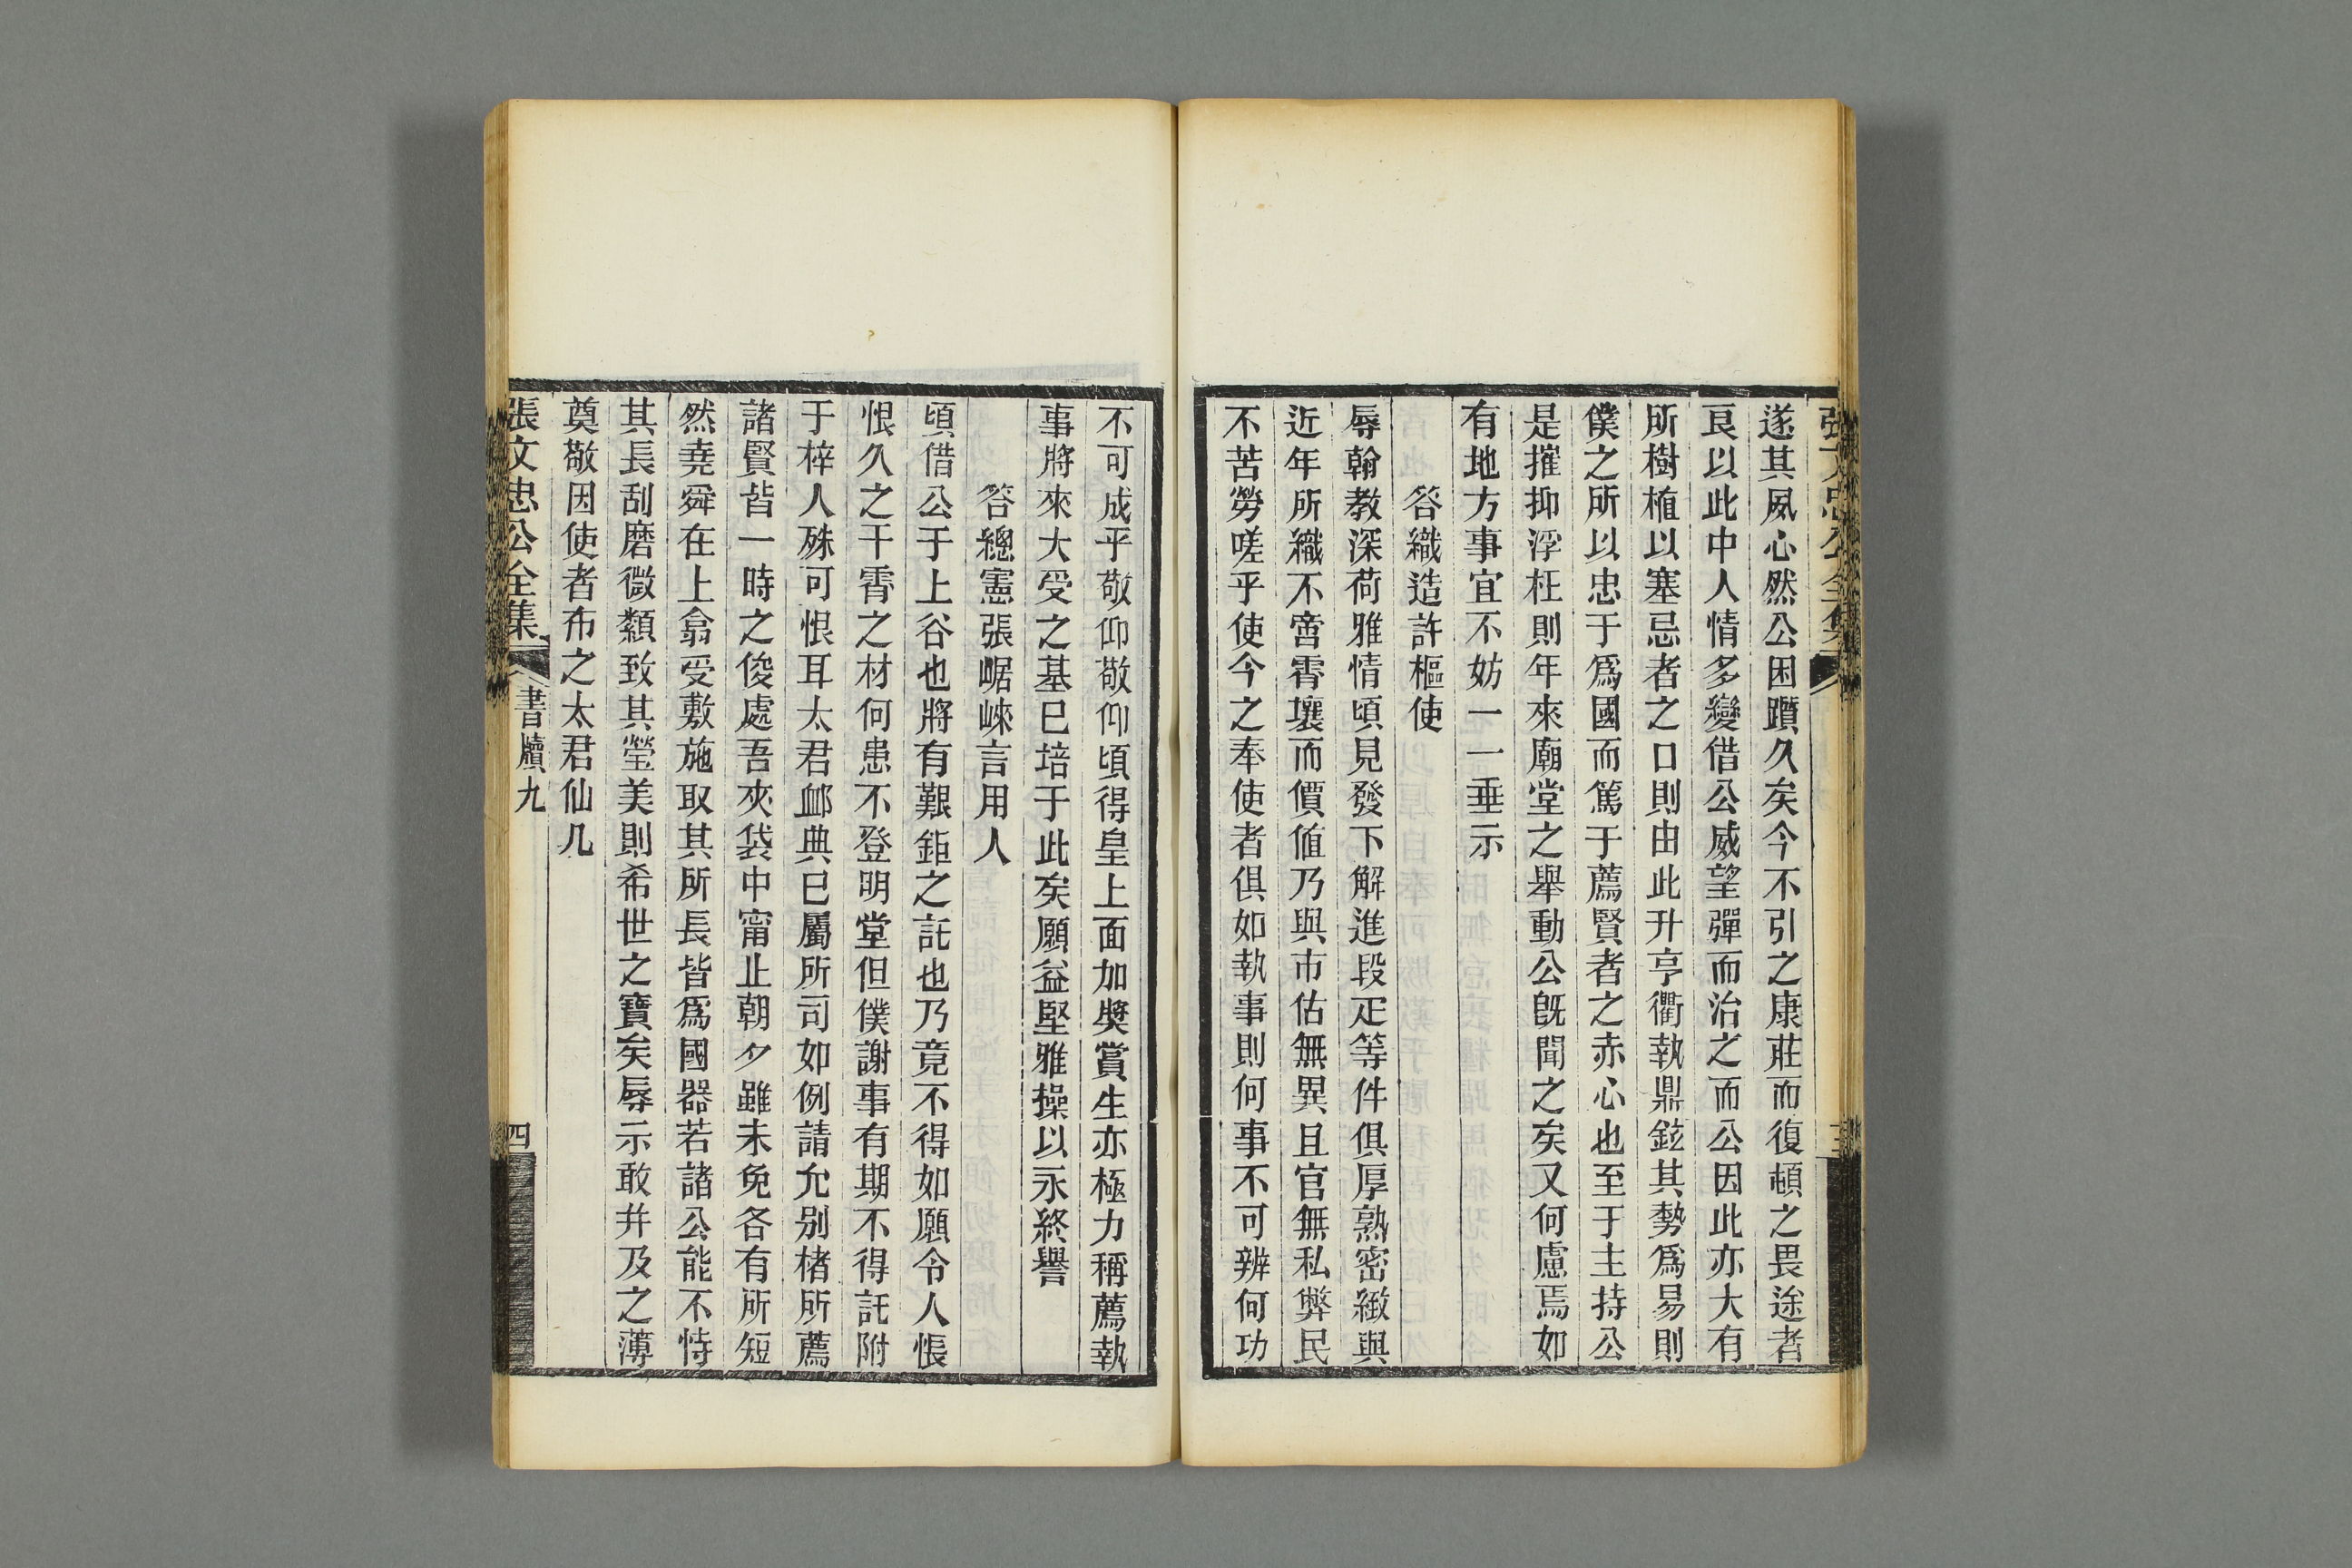 張文忠公全集
遂其夙心然公困躓久矣今不引之康莊而復頓之畏途者
良以此中人情多變借公威望彈而治之而公因此亦大有
所樹植以塞忌者之口則由此升亨衢執鼎鉉其勢爲易則
僕之所以忠于爲國而篤于薦賢者之赤心也至于主持公
是摧抑浮枉則年來廟堂之舉動公旣聞之矣又何慮焉如
有地方事宜不妨一一垂示
答織造許樞使
辱翰教深荷雅情頃見發下解進段疋等件俱厚熟密緻與
近年所織不啻霄壤而價値乃與市估無異且官無私弊民
不苦勞嗟乎使今之奉使者俱如執事則何事不可辨何功
不可成乎敬仰敬仰頃得皇上面加奬賞生亦極力稱薦執
事將來大受之基巳培于此矣願益堅雅操以永終譽
答總憲張崌崍言用人
頃借公于上谷也將有艱鉅之託也乃竟不得如願令人悵
恨久之干霄之材何患不登明堂但僕謝事有期不得託附
于梓人殊可恨耳太君卹典巳屬所司如例請允别楮所薦
諸賢皆一時之俊處吾夾袋中甯止朝夕雖未免各有所短
然堯舜在上翕受敷施取其所長皆爲國器若諸公能不恃
其長刮磨微纇致其瑩美則希世之寶矣辱示敢幷及之薄
奠敬因使者布之太君仙几
張文忠公全集
書牘九
四